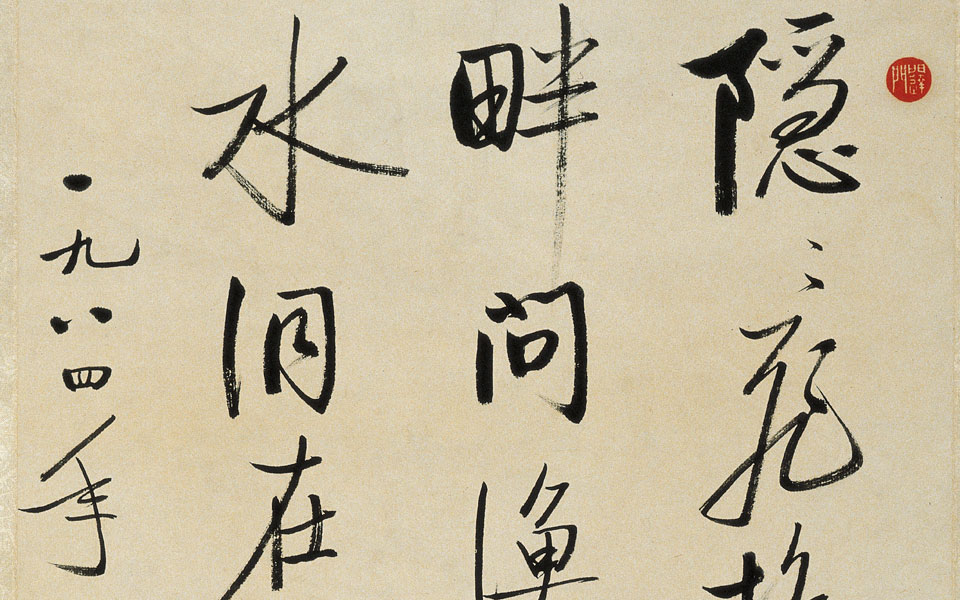 隐〻飛
畔问渔
水洞在
一九八四年